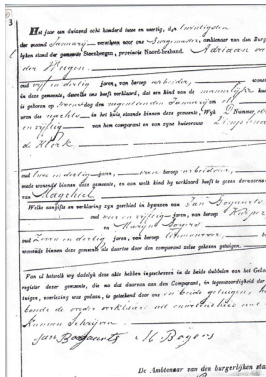 3
Het jaar een duizend acht honderd twee en veertig, den twintigsten
der maand Januarij verscheen voor ons Burgemeester, ambtenaar van den Burger-
lijken stand der gemeente Steenbergen, provincie Noord-braband, Adriaan van
der Heijgen
oud vijf en dertig jaren, van beroep arbeider, wonende
in deze gemeente, dewelke ons heeft verklaard, dat een kind van de mannelijke kunne
is geboren op den negentienden Januarij
uren des nachts in het huis, staande binnen deze gemeente, Wijk D Nummer
en vijftig van hem comparant en van zijne huisvrouw
de Klerk
oud twee en dertig jaren, van beroep arbeidster,
mede wonende binnen deze gemeente, en aan welk kind hij verklaard heeft te geven den voornaam
van Magchiel
Welke aangifte en verklaring zijn geschied in bijwezen van Jan Bogaerts
oud vier en vijftig jaren, van beroep
en Marijn Bogers
oud zeven en dertig jaren, van beroep
wonende binnen deze gemeente als daartoe door den comparant zelve gekozen getuigen.
Van al hetwelk wij dadelijk deze akte hebben ingeschreven in de beide dubbelen van het Geboorte-
register dezer gemeente, die na dat daarvan aan den Comparant, in tegenwoordigheid der ge-
tuigen, voorlezing was gedaan, is geteekend door ons en beide getuigen
kunnen schrijven
Jan Bogaerts M Bogers
De Ambtenaar van den burgerlijken stand